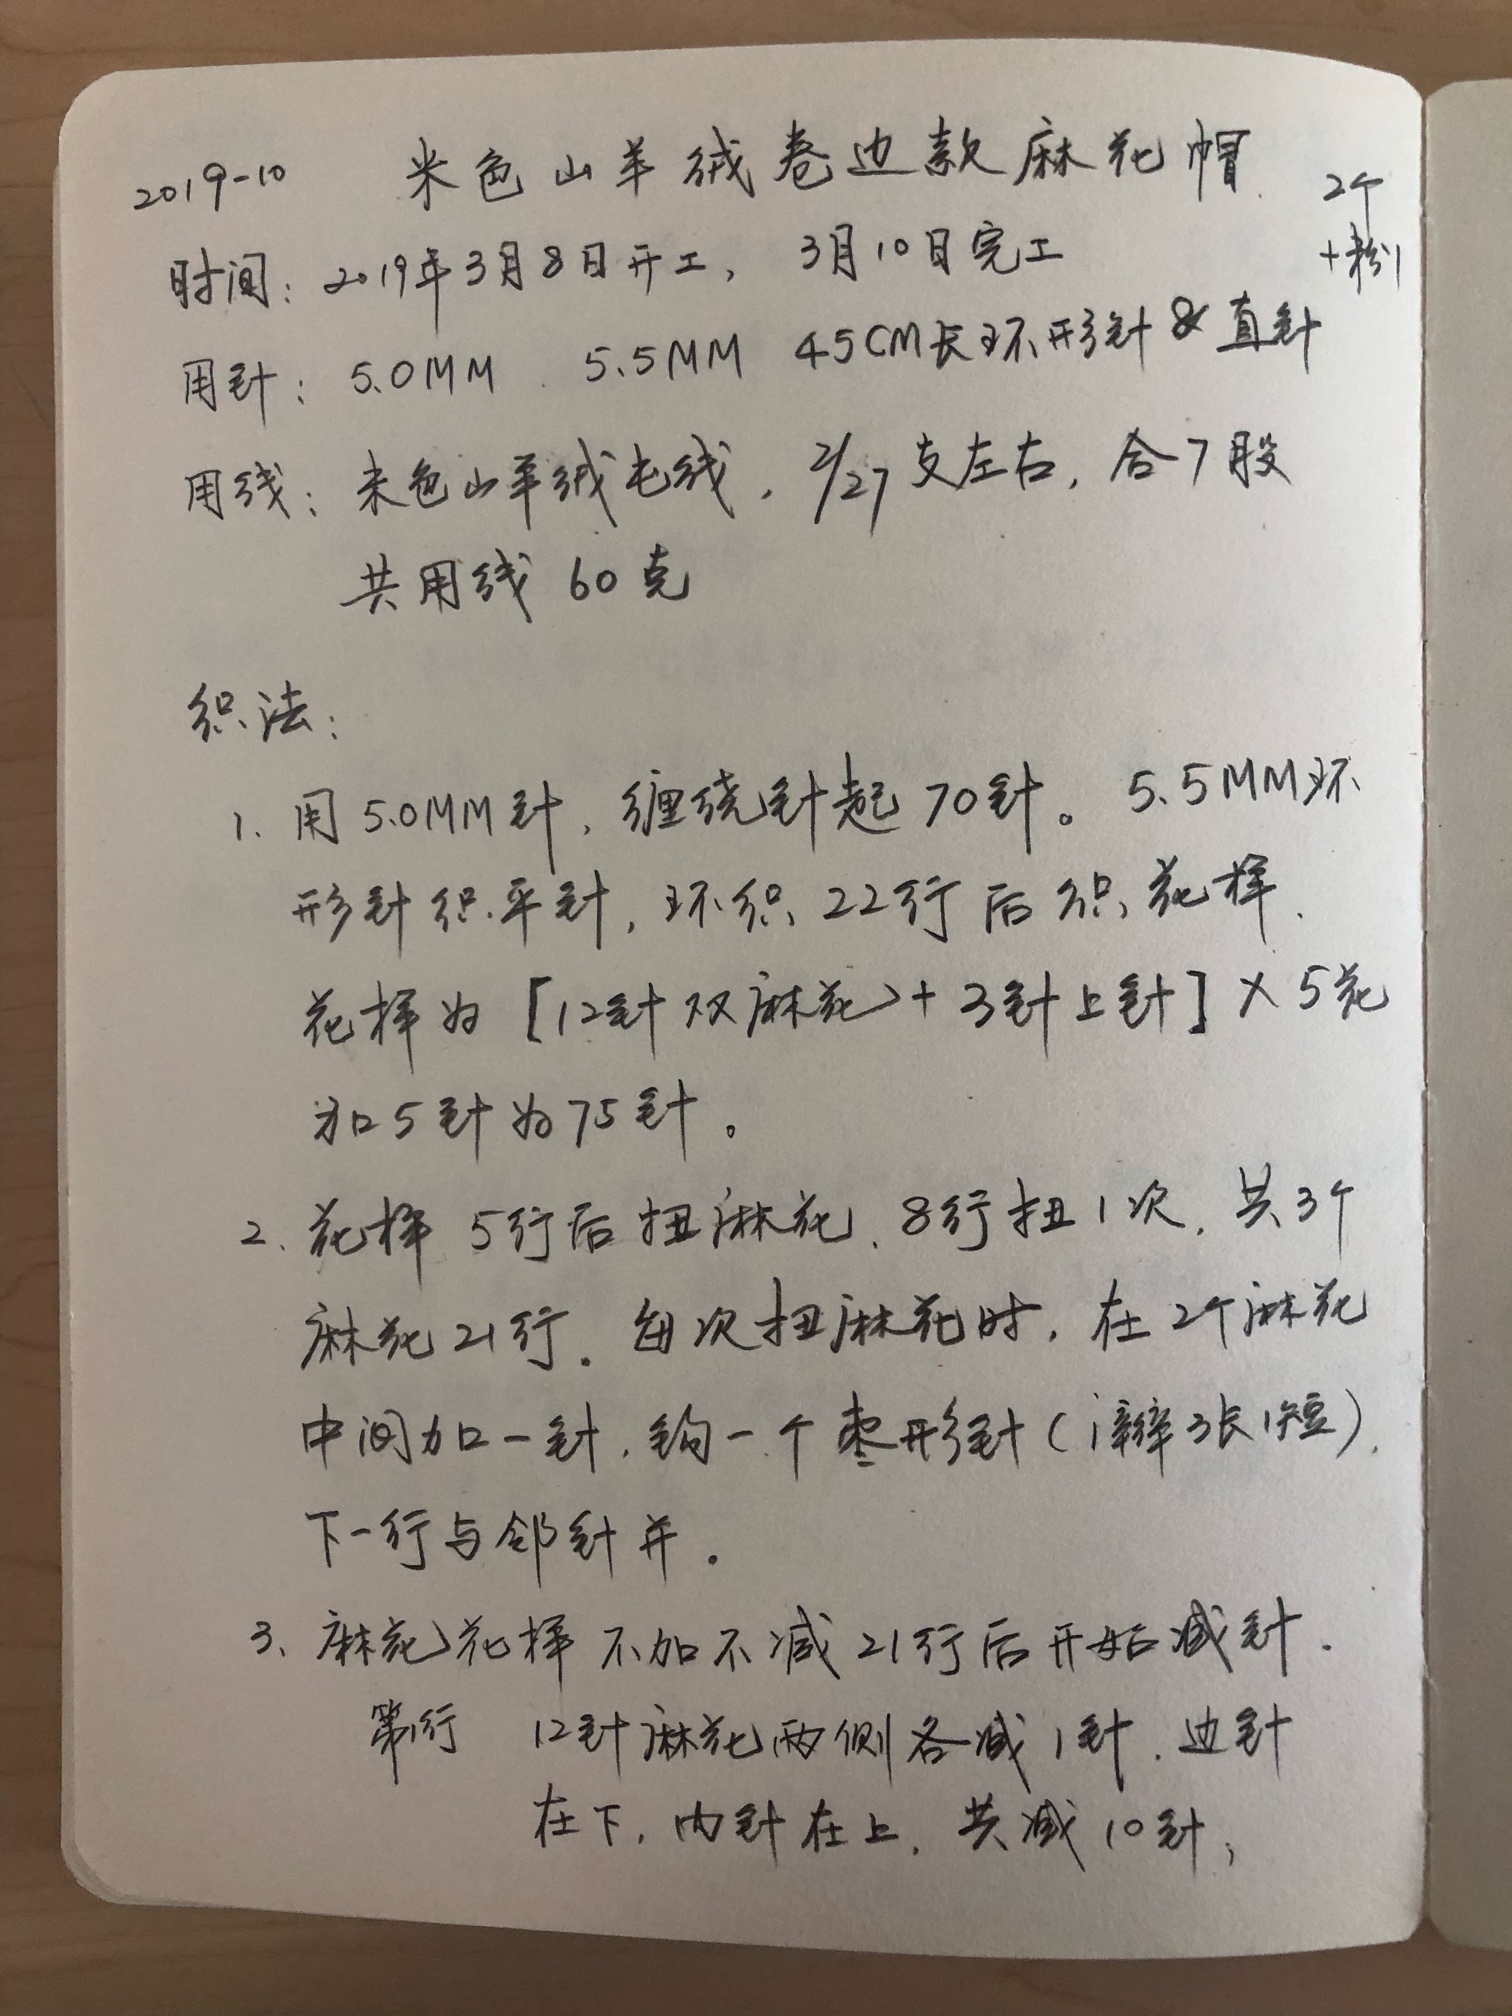 2019-10 米色山羊绒卷边款麻花帽 2个
+粉1
时间：2019年3月8日开工，3月10日完工
用针：5.0MM 5.5MM 45CM长环形针&直针
用线：米色山羊绒毛线，2/27支左右，合7股
共用线60克
织法：
1、用5.0MM针，缠绕针起70针。5.5MM环
形针织平针，环织22行后织花样.
花样为[12针双麻花+3针上针]×5花
加5针为75针。
2、花样5行后扭麻花，8行扭1次，共3个
麻花21行。每次扭麻花时，在2个麻花
中间加一针，钩一个枣形针（1辫3长1短），
下一行与邻针并。
3、麻花花样不加不减21行后开始减针.
第1行 12针麻花两侧各减1针，边针
在下，内针在上，共减10针；